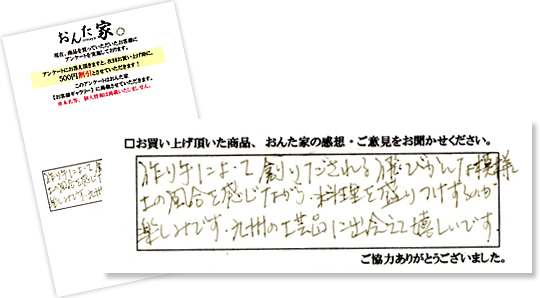 おんた家。
現在、商品を買っていただいたお客様に
アンケートを実施しております。
アンケートにお答え頂きますと、次回お買い上げ時に、
500円割引とさせていただきます！
このアンケートはおんた家
【お客様ギャラリー】に掲載させていただきます。
※本名等、個人情報は掲載いたしません。
作り手によって創
土の風合を感じ
楽しみです。九州
□お買い上げ頂いた商品、おんた家の感想・ご意見をお聞かせください。
作り手によって創りだされる飛びかんな模様
土の風合を感じながら、料理を盛りつけするのが
楽しみです。九州の工芸品に出会えて嬉しいです。
ご協力ありがとうございました。